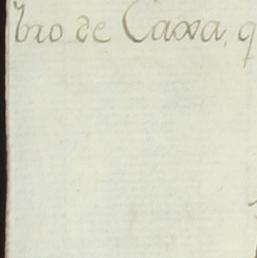 bro de Caxa, q